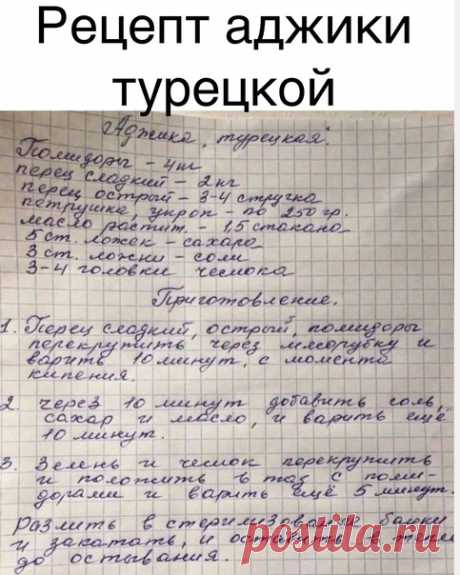 Рецепт аджики
турецкой
"Аджика, турецкая."
Помидоры – 4 кг
перец сладкий – 2 кг
перец острый – 3-4 стручка
петрушка, укроп – по 250 гр.
масло растит. – 1,5 стакана
5 ст. ложек – сахара
3 ст. ложки – соли
3-4 головки чеснока
Приготовление.
1. Перец сладкий, острый, помидоры
перекрутить через мясорубку и
варить 10 минут, с момента
кипения.
2. через 10 минут добавить соль,
сахар и масло, и варить ещё
10 минут.
3. Зелень и чеснок перекрутить
и положить в таз с поми-
дорами и варить ещё 5 минут.
Разлить в стерилизованые банки
и закатать, и оставить в тепле
до остывания.
postila.ru